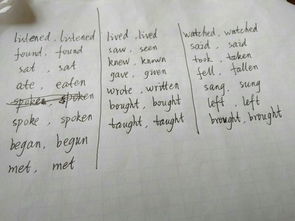 listened, listened
found, found
sat, sat
ate, eaten
spoke, spoken
spoke, spoken
began, begun
met, met
lived, lived
saw, seen
knew, known
gave, given
wrote, written
bought, bought
taught, taught
watched, watched
said, said
took, taken
fell, fallen
sang, sung
left, left
brought, brought